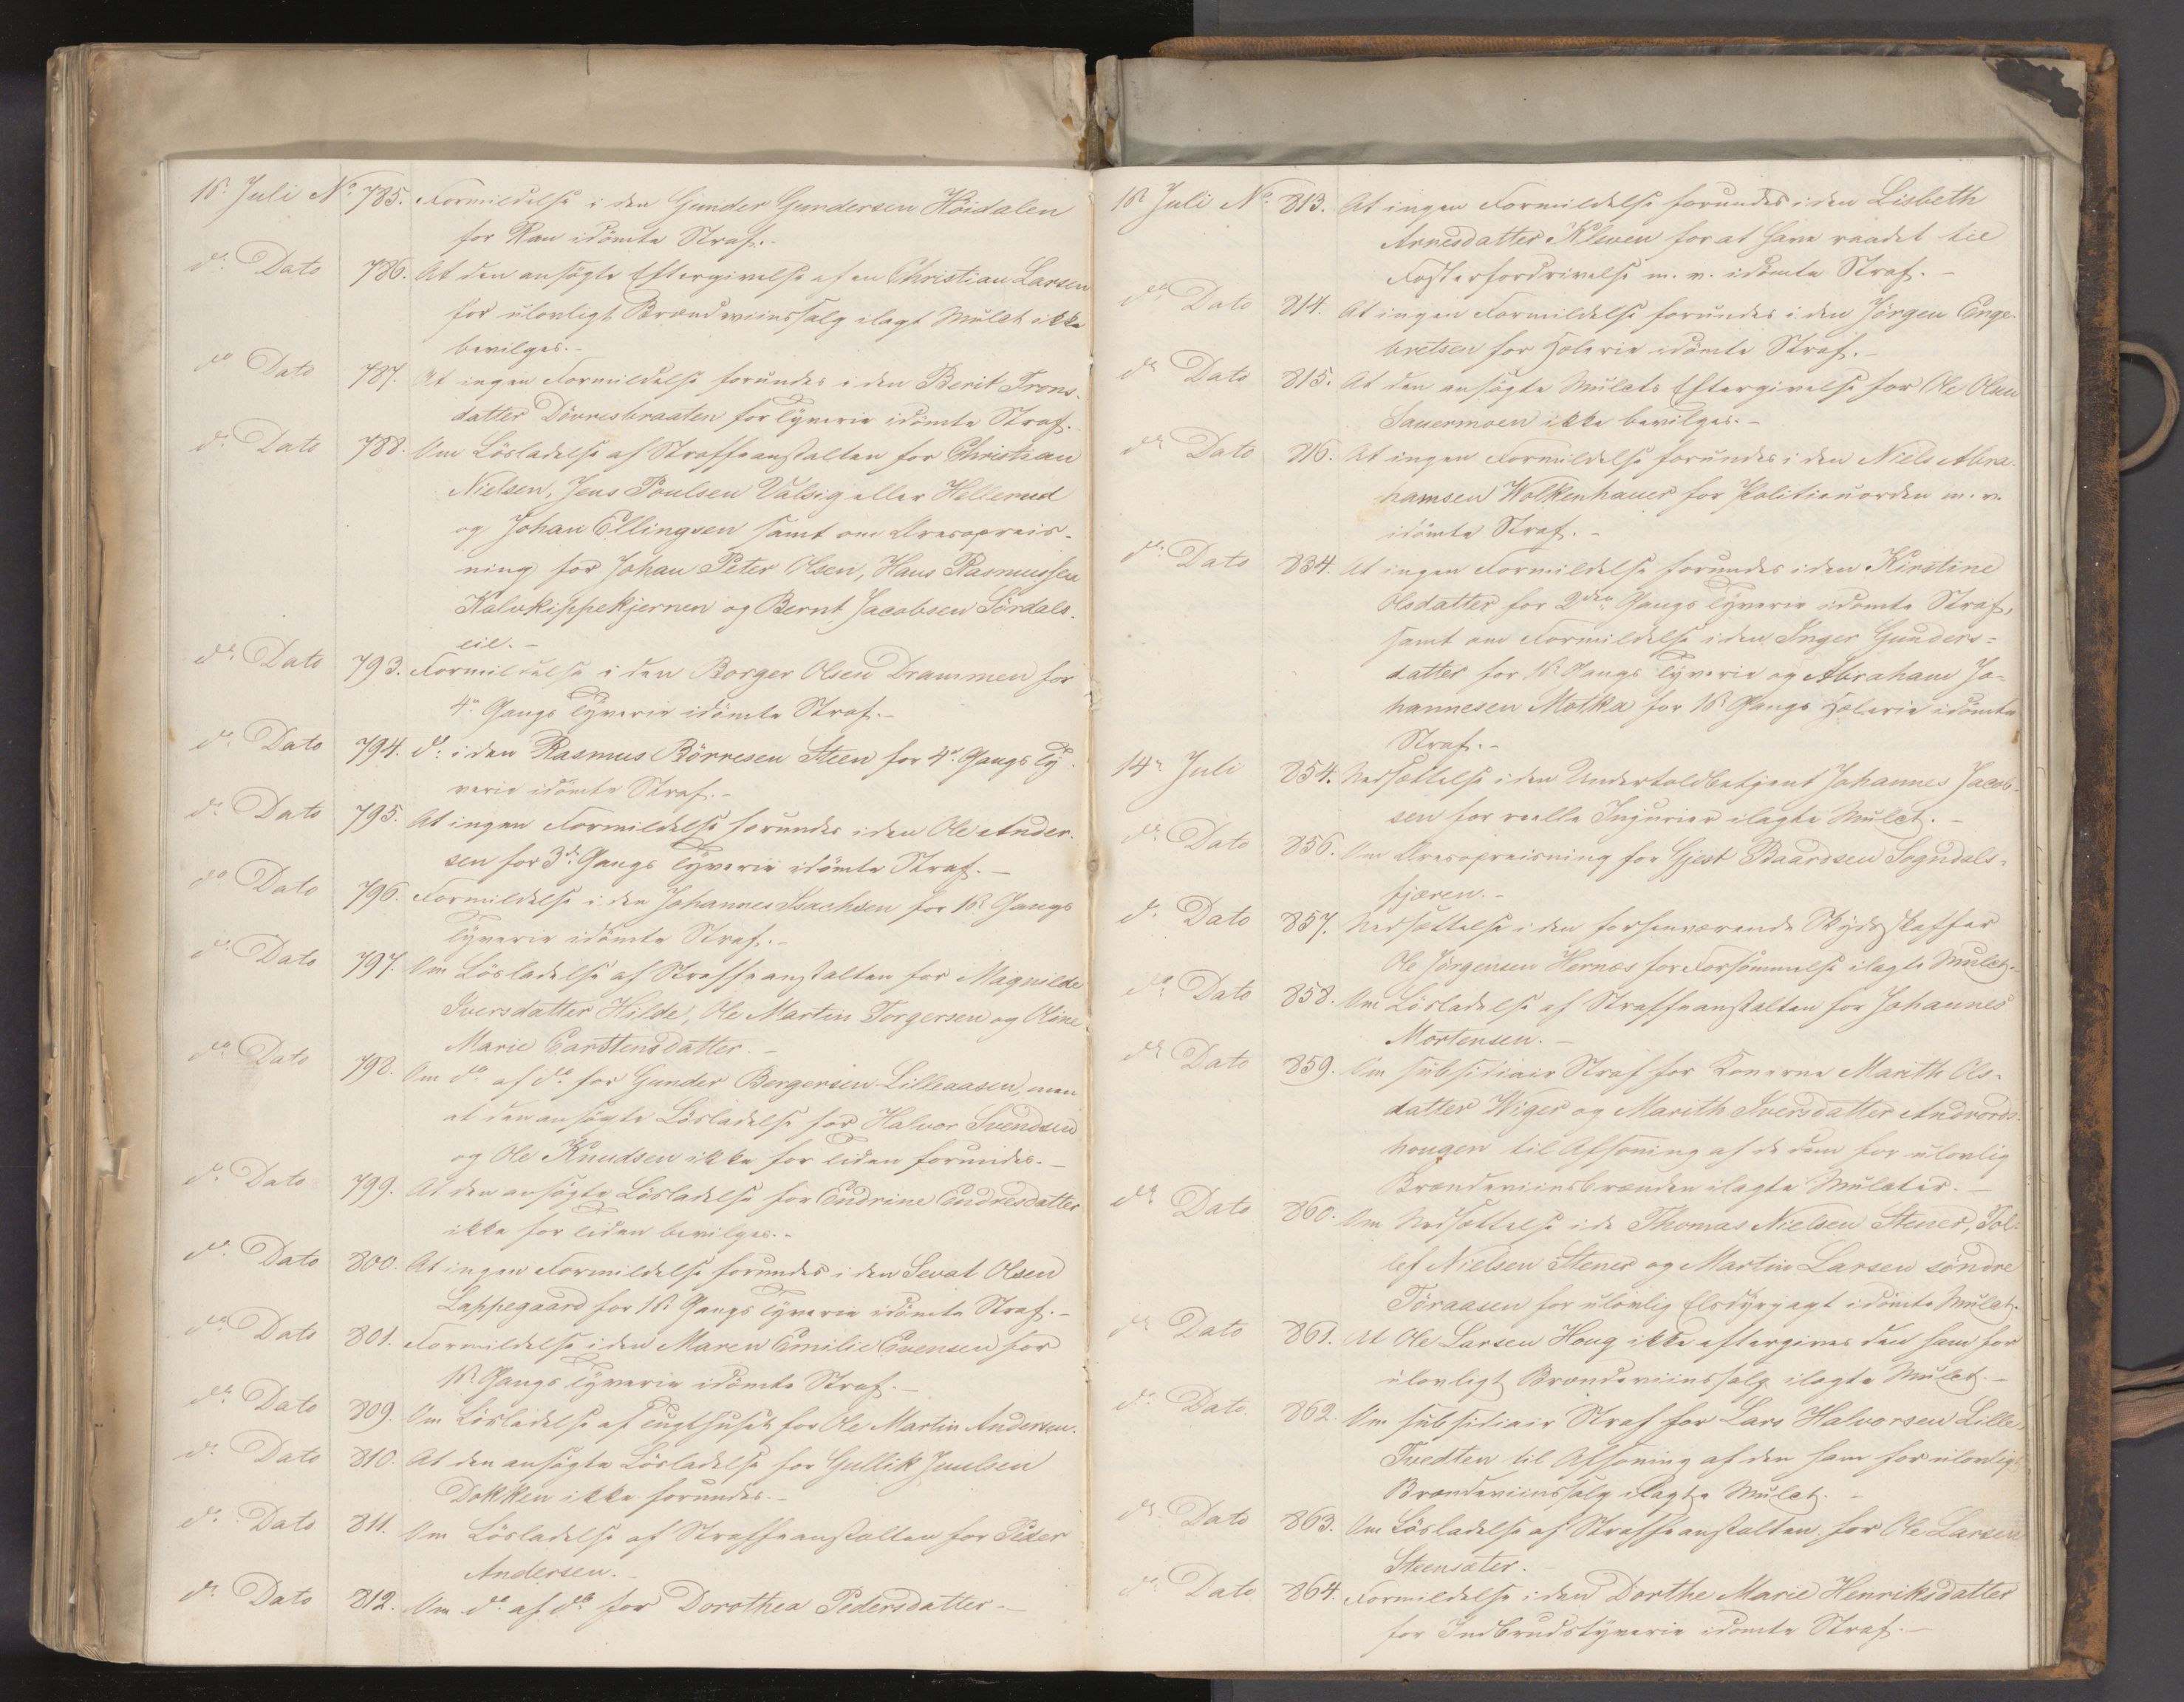 1ste Juli No. 785. Formildelse i den Gunder Gundersen Höidalen
for Ran idömte Straf.-
do. Dato 786. At den ansögte Eftergivelse af en Christian Larsen
for ulovligt Brændeviinssalg ilagt Mulct ikke
bevilges.-
do Dato 787. At ingen Formildelse forundes i den Berit Trons-
datter Dövreskraaten for Tyverie idömte Straf.
do. Dato 788. Om Lösladelse af Straffeanstalten for Christian
Nielsen, Jens Poulsen Valsig eller Hellerud
og Johan Ellingsen samt om Æresopreis-
ning for Johan Peter Olsen, Hans Rasmussen
Kalvkippekjernen og Bernt Jacobsen Sördals-
eie.-
do. Dato 793. Formildelse i den Borger Olsen Drammen for
4de Gangs Tyverie idömte Straf.-
do. Dato 794. do. i den Rasmus Börresen Steen for 4de Gangs Ty-
verie idömte Straf.-
do. Dato 795. At ingen Formildelse forundes i den Ole Ander-
sen for 3die Gangs Tyverie idömte Straf.-
do Dato 796. Formildelse i den Johannes Isachsen for 1ste Gangs
Tyverie idömte Straf.-
do. Dato 797. Om Lösladelse af Straffeanstalten for Magnilde
Iversdatter Hilde, Ole Martin Torgersen og Oline
Marie Carstensdatter.-
do. Dato 798. Om do. af do. for Gunder Bergersen Lilleaasen, men
at den ansögte Lösladelse for Halvor Svendsen
og Ole Knudsen ikke for Tiden forundes.-
do. Dato 799. At den ansögte Lösladelse for Endrine Endresdatter
ikke for Tiden bevilges.-
do. Dato 800. At ingen Formildelse forundes i den Sevat Olsen
Lappegaard for 1ste Gangs Tyverie idömte Straf.-
do. Dato 801. Formildelse i den Maren Emilie Evensen for
1ste Gangs Tyverie idömte Straf.-
do. Dato 809. Om Lösladelse af Tugthuset for Ole Martin Andersen.
do. Dato 810. At den ansögte Lösladelse for Gullik Juulsen
Dokken ikke forundes.-
do. Dato 811. Om Lösladelse af Straffeanstalten for Peder
Andersen.-
do. Dato 812. Om do. af do. for Dorothea Pedersdatter.-
1ste Juli No. 813. At ingen Formildelse forundes i den Lisbeth
Arnesdatter Kleven for at have raadet til
Fosterfordrivelse m. v. idömte Straf.-
do. Dato 814. At ingen Formildelse forundes i den Jörgen Enge-
bretsen for Hælerie idömte Straf.-
do. Dato 815. At den ansögte Mulcts Eftergivelse for Ole Olsen
Sauermoen ikke bevilges.-
do. Dato 816. At ingen Formildelse forundes i den Niels Abra-
hamsen Wolkenhauer for Politieuorden m. v.
idömte Straf.-
do. Dato 834. At ingen Formildelse forundes i den Kirstine
Olsdatter for 2den Gangs Tyverie idömte Straf,
samt om Formildelse i den Inger Gunders-
datter for 1ste Gangs Tyverie og Abraham Jo-
hannesen Motka for 1ste Gangs Hælerie idömte
Straf.-
14de Juli 854. Nedsættelse i den Undertoldbetjent Johannes Jacob-
sen for reelle Injurier ilagte Mulct.-
do. Dato 856. Om Æresopreisning for Gjest Baardsen Sogndals-
fjæren.-
do. Dato 857. Nedsættelse i den forhenværende Skydsskaffer
Ole Jörgensen Hernæs for Forsömmelse ilagte Mulct.-
do. Dato 858. Om Lösladelse af Straffeanstalten for Johannes
Mortensen.-
do. Dato 859. Om subsidiair Straf for Konerne Marith Ols-
datter Wiger og Marith Iversdatter Andvords-
hougen til Afsoning af de dem for ulovlig
Brændeviinsbrænden ilagte Mulcter.-
do. Dato 860. Om Nedsættelse i de Thomas Nielsen Stener, Tol-
lef Nielsen Stener og Martin Larsen söndre
Töraasen for ulovlig Elsdyrjagt idömte Mulct.
do. Dato 861. At Ole Larsen Houg ikke eftergives den ham for
ulovligt Brændeviinssalg ilagte Mulct.-
do. Dato 862. Om subsidiair Straf for Lars Halvorsen Lille-
Tvedten til Afsoning af den ham for ulovligt
Brændeviinssalg ilagte Mulct.-
do. Dato 863. Om Lösladelse af Straffeanstalten for Ole Larsen
Steensæter.-
do. Dato 864. Formildelse i den Dorthe Marie Henriksdatter
for Indbrudstyverie idömte Straf.-